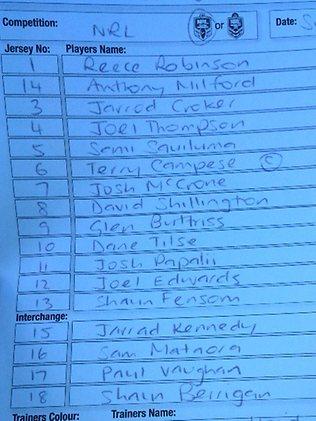 Competition: NRL or Date: S
Jersey No: Players Name:
1 Reece Robinson
14 Anthony Milford
3 Jarrod Croker
4 Joel Thompson
5 Sami Sauiluma
6 Terry Campese C
7 Josh McCrone
8 David Shillington
9 Glen Buttriss
10 Dane Tilse
11 Josh Papalii
12 Joel Edwards
13 Shaun Fensom
Interchange:
15 Jarrad Kennedy
16 Sam Mataora
17 Paul Vaughan
18 Shaun Berrigan
Trainers Colour: Trainers Name: